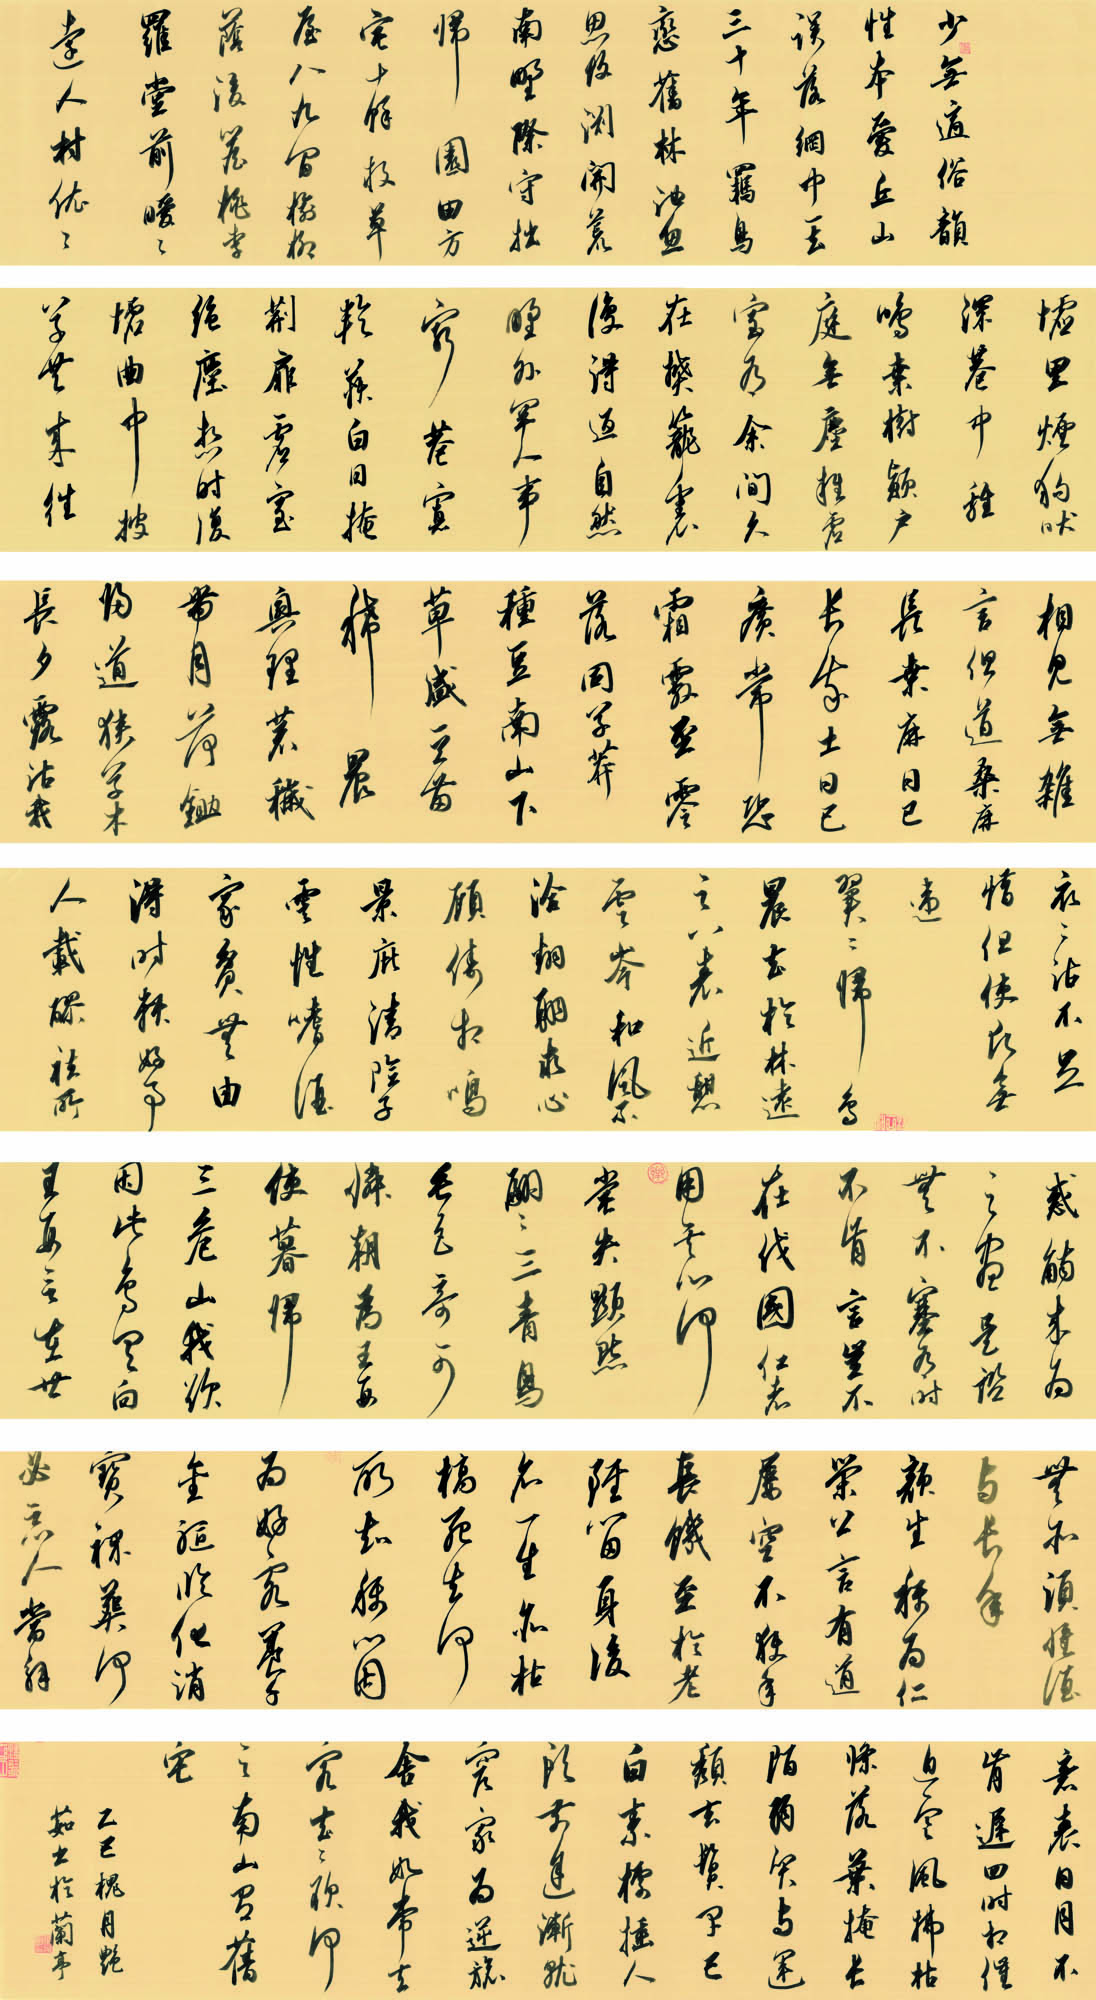 少無適俗韻
性本愛丘山
誤落網中一去
三十年羈鳥
戀舊林池魚
思故淵開荒
南野際守拙
歸園田方
宅十餘畝草
屋八九間榆柳
蔭後簷桃李
羅堂前曖〻
遠人村依〻
墟里煙狗吠
深巷中雞
鳴桑樹顛户
庭無塵雜虛
室有余間久
在樊籠裏
復得返自然
野外罕人事
窮巷寡
輪鞅白日掩
荊扉虛室
絕塵想時復
墟曲中披
草共來往
相見無雜
言但道桑麻
長桑麻日已
長我土日已
廣常恐
霜霰至零
落同草莽
種豆南山下
草盛豆苗
稀晨
興理荒穢
帶月荷鋤
歸道狹草木
長夕露沾我
衣〻沾不足
惜但使願無
違
翼〻歸鳥
晨去於林遠
之八表近憩
雲岑和風不
洽翻翮求心
顧儔相鳴
景庇清陰子
雲性嗜酒
家貧無由
得時賴好事
人載醪祛所
惑觴來為
之盡是諮
無不塞有時
不肯言豈不
在伐國仁者
用其心何
嘗失顯默
翩〻三青鳥
毛色奇可
憐朝為王母
使暮歸
三危山我欲
因此鳥具向
王母言在世
無所須惟酒
与長年
顏生稱為仁
榮公言有道
屢空不獲年
長饑至於老
雖留身後
名一生亦枯
槁死去何
所知稱心固
為好客養千
金軀臨化消
寶裸葬何
必惡人當解
意表日月不
肯遲四時相催
迫寒風拂枯
條落葉掩長
陌弱質与運
頹玄鬢早已
白素標插人
頭前途漸就
窄家為逆旅
舍我如當去
客去〻欲何
之南山有舊
宅
乙巳槐月艷
茹書於蘭亭